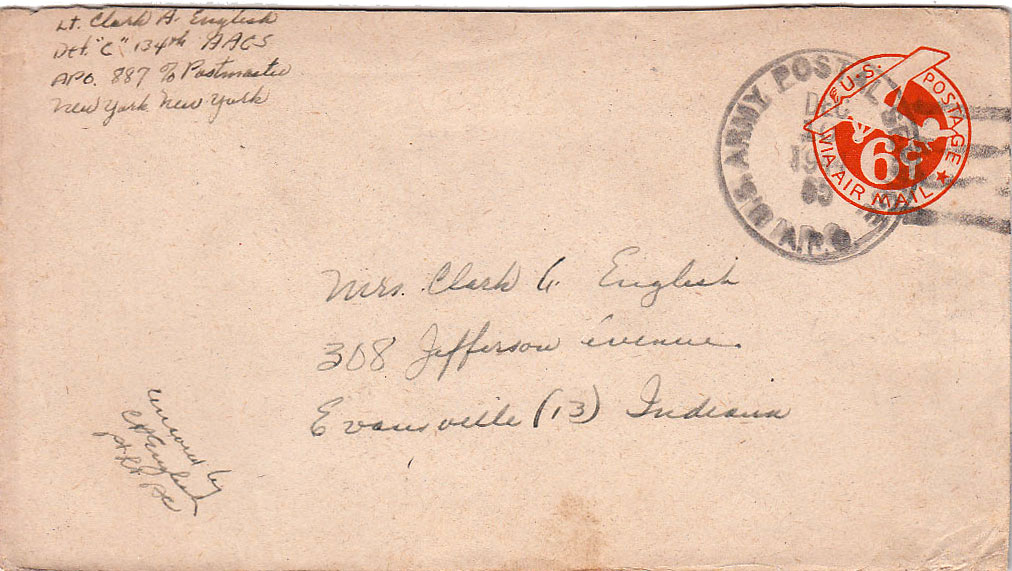 Lt. Clark A. English
Det. "C" 134th AACS
APO. 887 % Postmaster
New York New York
U.S. ARMY POSTAL
DEC
10
19
A.P.O.
U.S. POSTAGE
6¢
VIA AIR MAIL
Mrs. Clark A. English
308 Jefferson Avenue
Evansville (13) Indiana
Censored by
CA English
1st Lt. AC